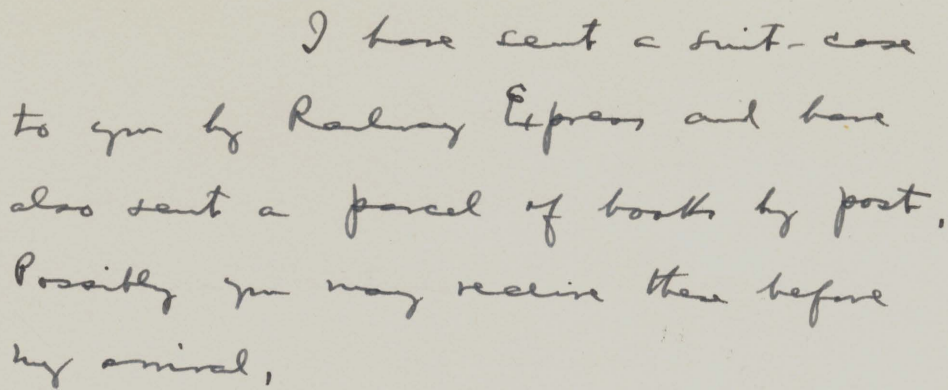 I have sent a suit-case
to you by Railway Express and have
also sent a parcel of books by post.
Possibly you may receive these before
my arrival.